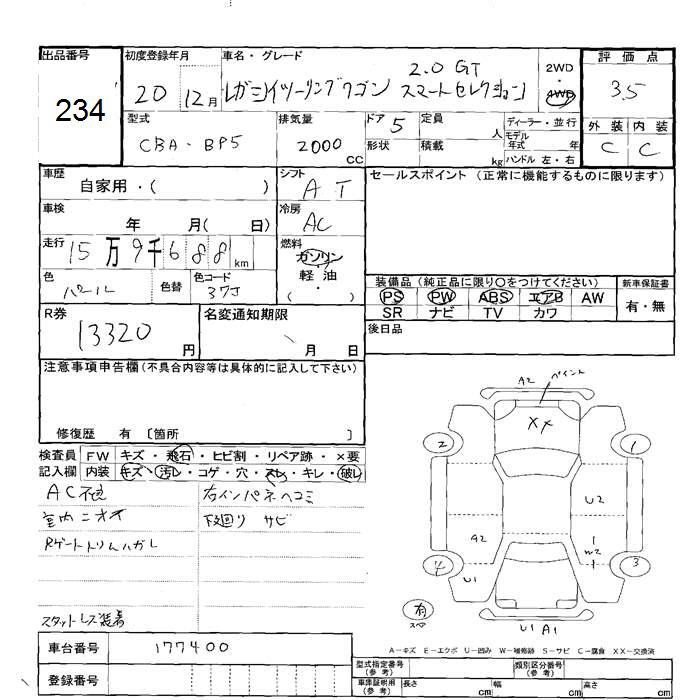 出品番号 初度登録年月 車名・グレード 2WD 評価点
234 20 12月 レガシイツーリングワゴン 2.0 GT スマートセレクション 4WD 3.5
型式 排気量 ドア 5 定員 人 ディーラー・並行 外装 内装
CBA-BP5 2000 CC 形状 積載 kg モデル年式 年 ハンドル 左・右 C C
車歴 シフト セールスポイント (正常に機能するものに限ります)
自家用・( ) AT
車検 年 月( 日) 冷房 AC
走行 15万9千688km 燃料 ガソリン 軽油 ・ ( )
色 パール 色替 色コード 37J
装備品 (純正品に限り○をつけてください) 新車保証書
PS PW ABS エアB AW 有・無
SR ナビ TV カワ
R券 13320円 名変通知期限 月 日 後日品
注意事項申告欄(不具合内容等は具体的に記入して下さい)
修復歴 有 〔箇所 〕
検査員 FW キズ・飛石・ヒビ割・リペア跡・×要
記入欄 内装 キズ・汚レ・コゲ・穴・スレ・キレ・破レ
AC不良 右インパネヘコミ
室内ニオイ 下廻り サビ
Rゲートトリムハガレ
スタットレス装着
A2 ペイント
XX
2 1
U2
A2 W2
4 3
U1
有
スペア
U1 A1
A-キズ E-エクボ U-凹み W-補修跡 S-サビ C-腐食 XX-交換済
車台番号 177400
登録番号
型式指定番号(参考) 類別区分番号(参考)
車庫証明用(参考) 長さ cm 幅 cm 高さ cm